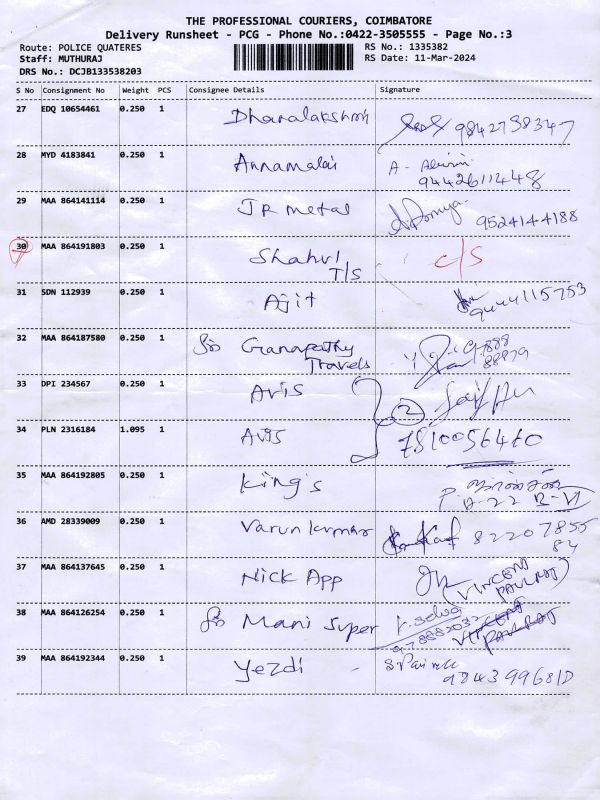 THE PROFESSIONAL COURIERS, COIMBATORE
Delivery Runsheet - PCG - Phone No.:0422-3505555 - Page No.:3
Route: POLICE QUATERES
RS No.: 1335382
Staff: MUTHURAJ
RS Date: 11-Mar-2024
DRS No.: DCJB133538203
S No Consignment No Weight PCS Consignee Details Signature
27 EDQ 10654461 0.250 1 Dhanalakshmi 9842738347
28 MYD 4183841 0.250 1 Annamalai A-
9442611448
29 MAA 864141114 0.250 1 JR metal 9524144188
30 MAA 864191803 0.250 1 Shahul c/s
T/S
31 SDN 112939 0.250 1 Ajit 9444115753
32 MAA 864187580 0.250 1 Ganapathy
Travels 88879
33 DPI 234567 0.250 1 Avis 2
34 PLN 2316184 1.095 1 Avis 7810056460
35 MAA 864192805 0.250 1 King's P.
A-22 R-VI
36 AMD 28339009 0.250 1 Varun kumar 82207855
84
37 MAA 864137645 0.250 1 Nick App (VINCENT
PAULRAJ)
38 MAA 864126254 0.250 1 Mani Super r. selva
VINCENT
PAULRAJ
39 MAA 864192344 0.250 1 Yezdi -
9843996810